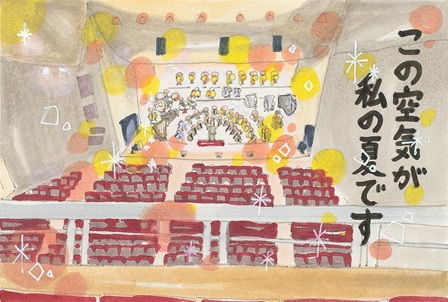 この空気が
私の夏です